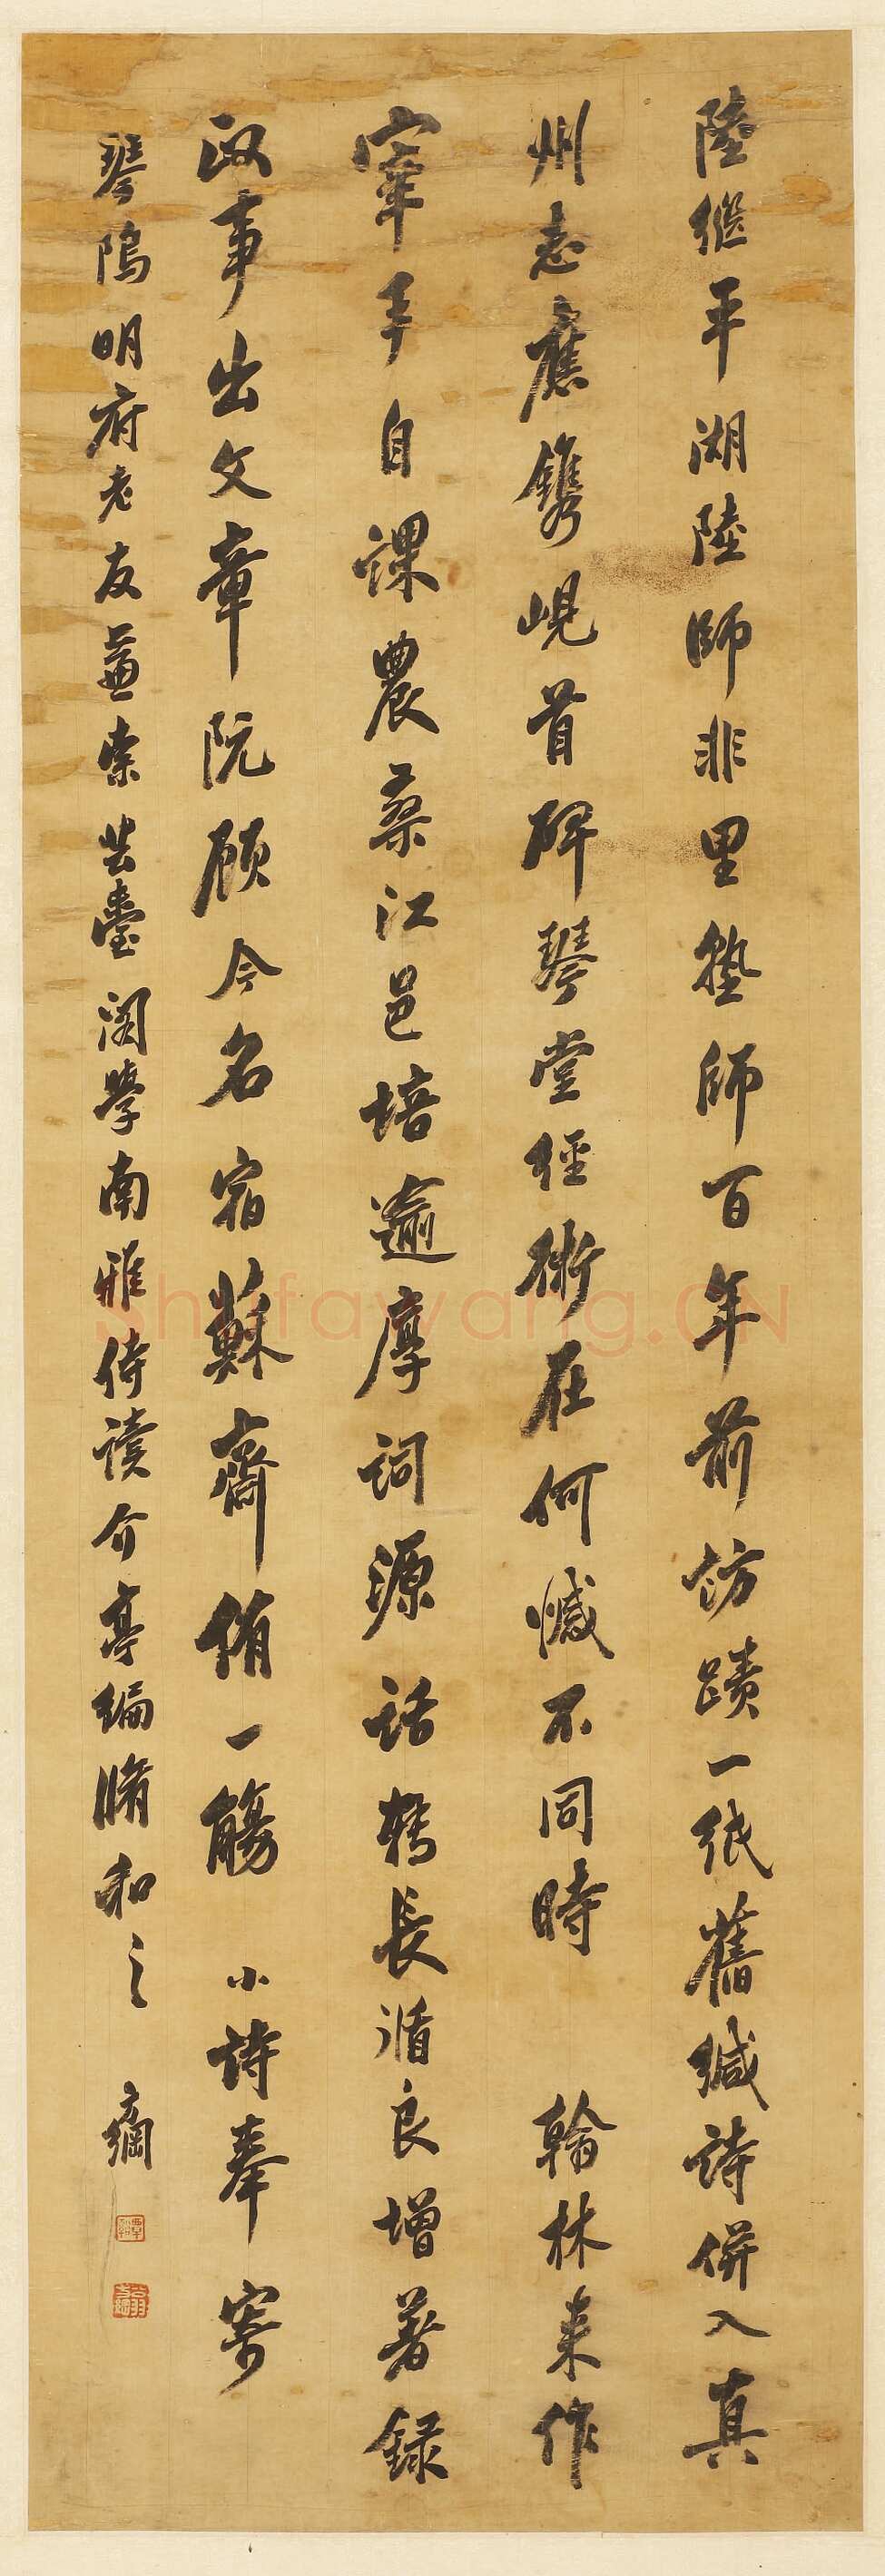 陸繼平湖陸師非里塾師百年前訪蹟一紙舊緘詩併入真
州志應鐫峴首碑琴堂經術在何憾不同時 翰林来作
宰手自課農桑江邑培逾厚詞源話轉長循良增著録
政事出文章阮顧今名宿蘇齋侑一觴 小詩奉寄
琴隖明府老友兼柬芸臺閣學南雅侍讀介亭編脩和之 方綱
Shufawang.CN